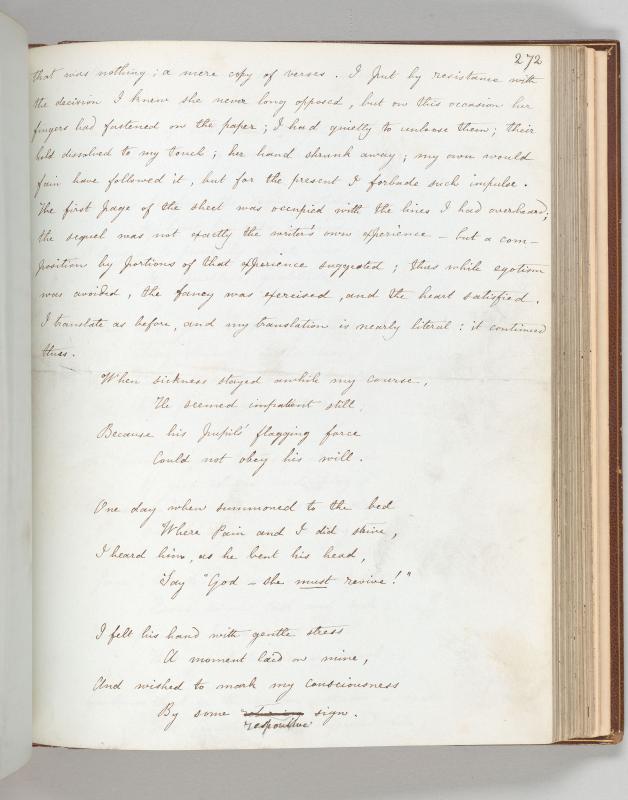 272
that was nothing; a mere copy of verses. I put by resistance with
the decision I knew she never long opposed, but on this occasion her
fingers had fastened on the paper; I had quietly to unloose them; their
hold dissolved to my touch; her hand shrunk away; my own would
fain have followed it, but for the present I forbade such impulse.
The first page of the sheet was occupied with the lines I had overheard;
the sequel was not exactly the writer's own experience – but a com-
position by portions of that experience suggested; thus while egotism
was avoided, the fancy was exercised, and the heart satisfied.
I translate as before, and my translation is nearly literal: it continued
thus.
When sickness stayed awhile my course,
He seemed impatient still,
Because his pupil's flagging force
Could not obey his will.
One day when summoned to the bed
Where Pain and I did strive,
I heard him, as he bent his head,
Say "God – she must revive!"
I felt his hand with gentle stress
A moment laid on mine,
And wished to mark my consciousness
By some sign.
responsive